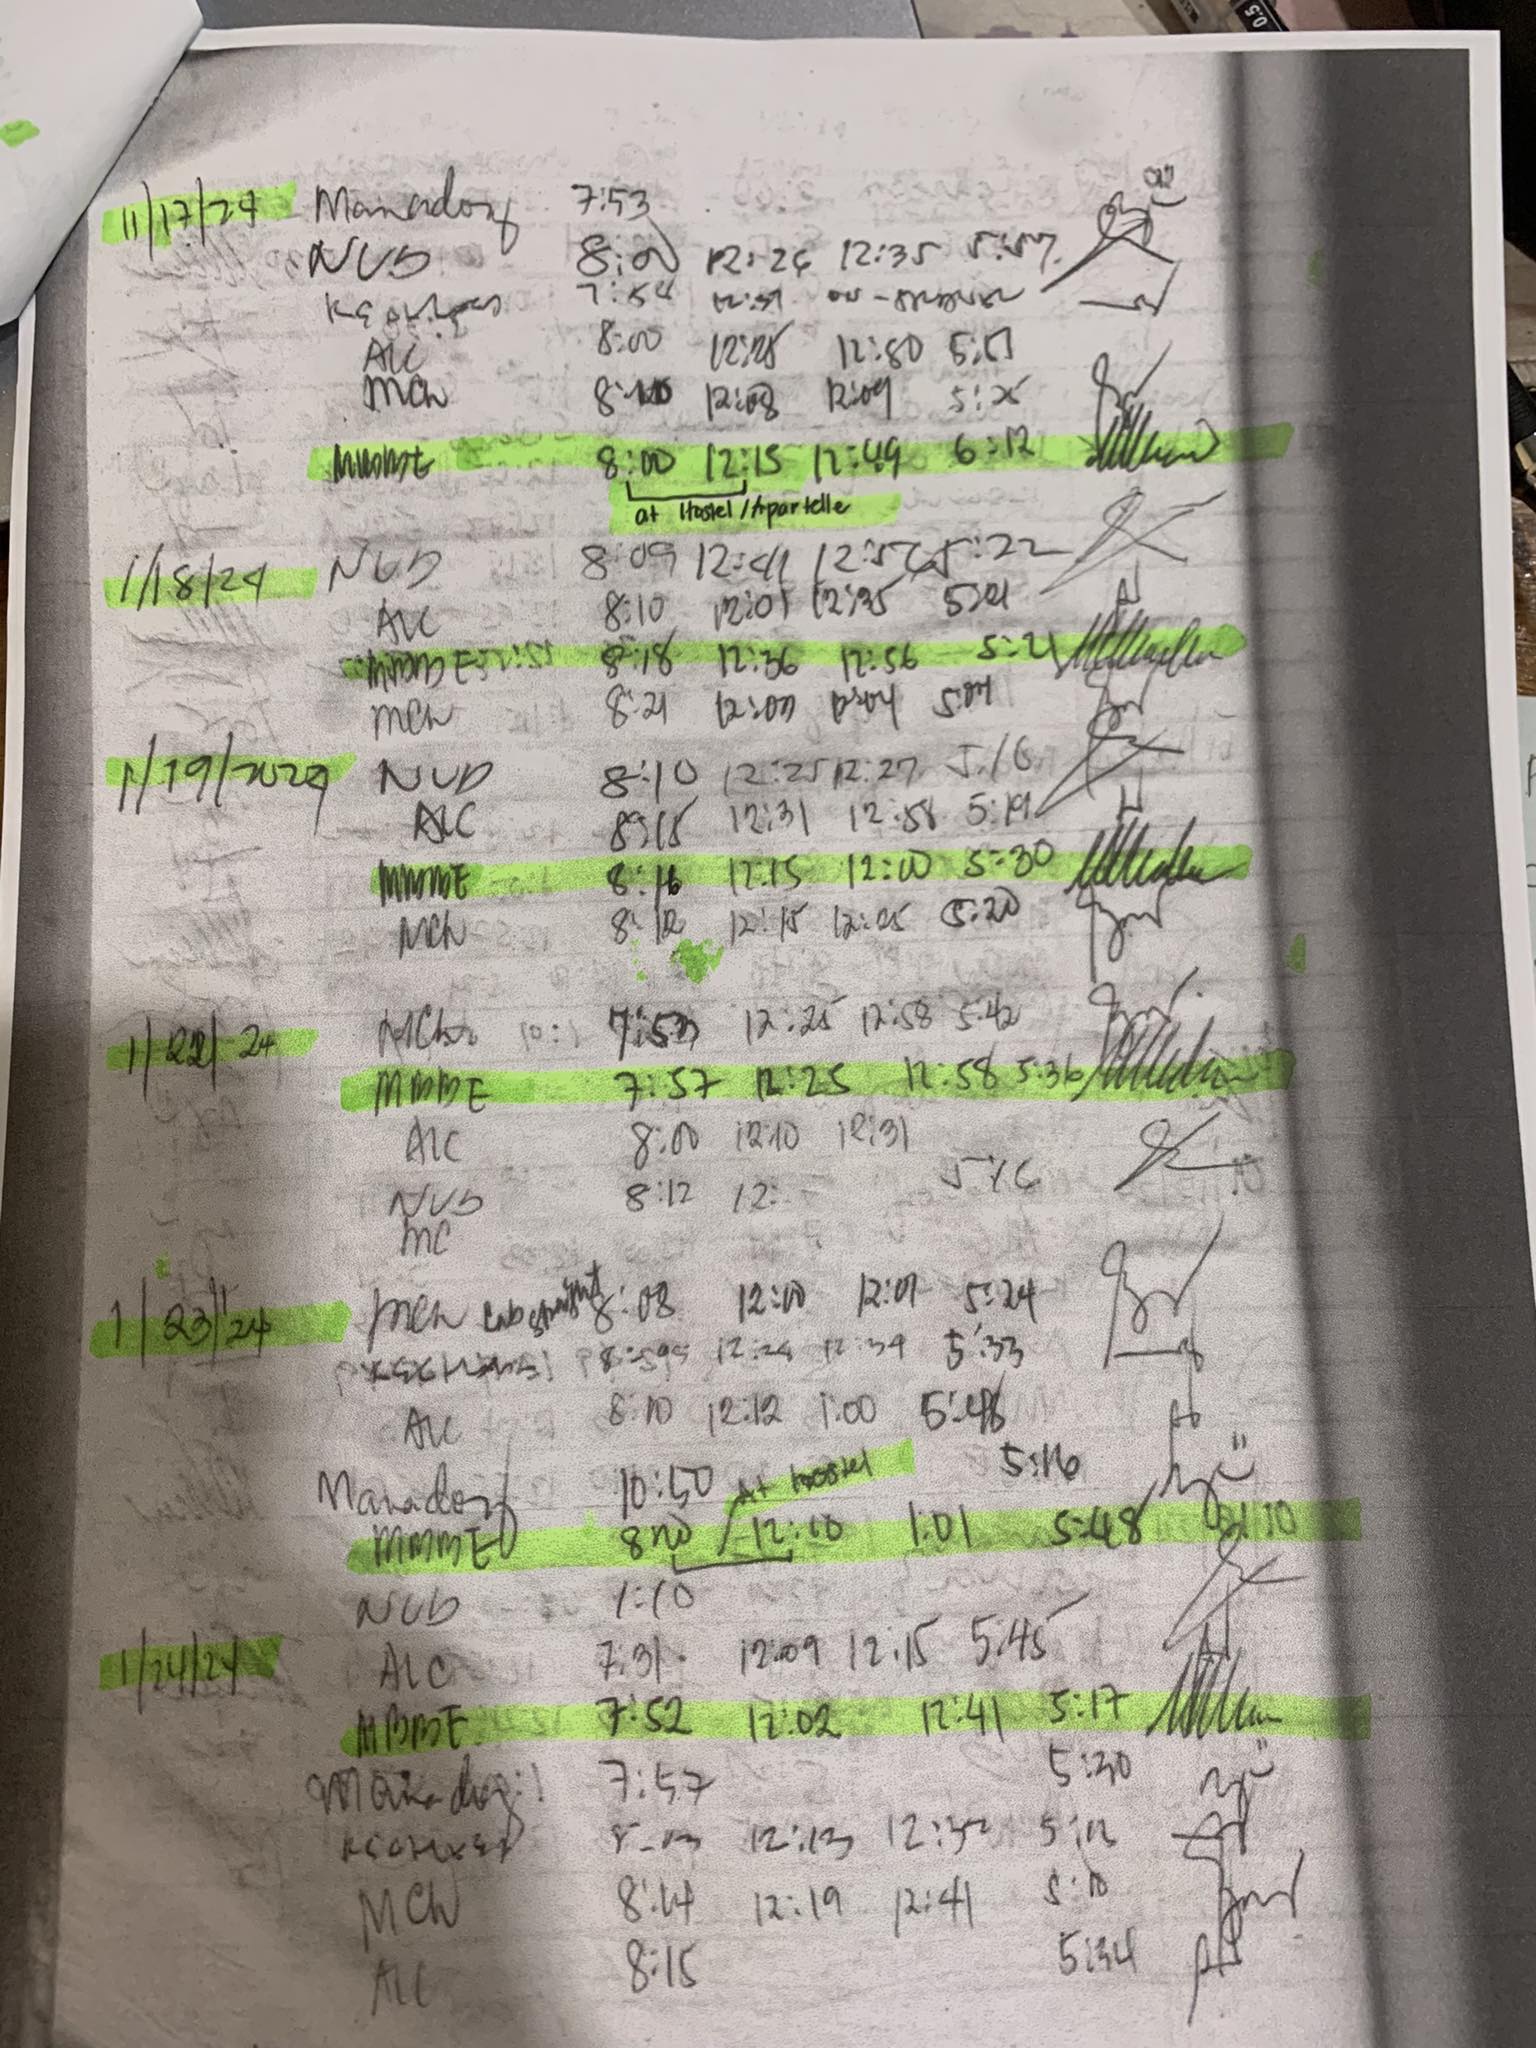 1/17/24 Manadog 7:53
NUD 8:00 12:26 12:35 5:57
7:54 12:51
ALC 8:00 12:25 12:50 5:51
MCh 12:08 12:09 5:25
MMBME 8:00 12:15 12:49 6:12
at Hostel/Apartelle
1/18/24 NUD 8:09 12:41 12:56 5:22
ALC 8:10 12:01 12:35 5:21
MBME 8:18 12:36 12:56 5:21
MCh 8:21 12:03 12:04 5:04
1/19/2024 NUD 8:10 12:25 12:27 5:16
ALC 12:31 12:58 5:19
MMBME 8:16 12:15 12:00 5:30
MCh 8:12 12:15 12:25 5:20
1/22/24 MCh 7:53 12:25 12:58 5:42
MBME 7:57 12:25 12:58 5:36
ALC 8:00 12:10 12:31
NUD 8:12 12: 5:16
MC
1/23/24 MCh 8:08 12:00 12:01 5:24
12:24 12:34 5:33
ALC 8:10 12:12 1:00 5:48
Manadog 10:50 At Hostel 5:16
MBME 8:00 12:00 1:01 5:48
NUD 1:10
1/24/24 ALC 7:31 12:09 12:15 5:45
MBME 7:52 12:02 12:41 5:17
Manadog 7:57 5:30
12:13 12:32 5:12
MCh 8:14 12:19 12:41 5:10
ALC 8:15 5:34